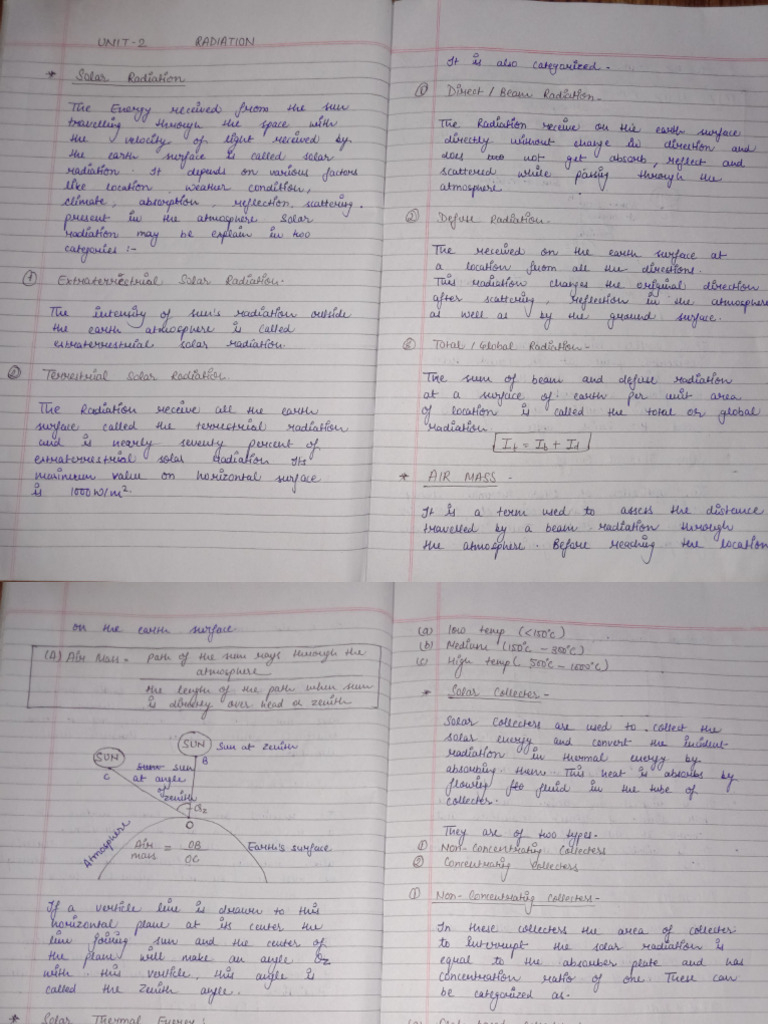 UNIT-2 RADIATION
* Solar Radiation
The Energy received from the sun
travelling through the space with
the velocity of light received by
the earth surface is called solar
radiation. It depends on various factors
like location, weather condition,
climate, absorption, reflection, scattering.
present in the atmosphere solar
radiation may be explain in two
categories :-
① Extraterrectrial Solar Radiation.
The intensity of sun's radiation outside
the earth atmosphere is called
extraterrestrial solar radiation.
② Terrestrial Solar Radiation.
The Radiation receive all the earth
surface called the terrestrial radiation
and is nearly seventy percent of
extraterrestrial solar radiation Its
maximum value on horizontal surface
is 1000W/m².
It is also categorized.
① Direct / Beam Radiation.
The Radiation receive on the earth surface
directly without change in direction and
does not get absorb, reflect and
scattered while passing through the
atmosphere
② Defuse Radiation.
The received on the earth surface at
a location from all the directions.
This radiation changes the original direction
after scattering, reflection in the atmosphere
as well as by the ground surface.
Total / Global Radiation-
The sum of beam and defuse radiation
at a surface of earth per unit area
of location is called the total or global
radiation.
It = Ib + Id
* AIR MASS -
It is a term used to assess the distance
travelled by a beam radiation through
the atmosphere. Before reaching the location
on the earth surface
(A) Air Mass = Path of the sun rays through the
atmosphere
the length of the path when sun
is directly over head or zenith
SUN SUN Sun at zenith
C sun B
at angle
of
zenith θz
O
Atmosphere
Air mass = OB
OC
Earth's surface
If a verticle line is drawn to this
horizontal plane at its center the
line joining sun and the center of
the plane will make an angle θz
with this verticle, this angle is
called the zenith angle.
* Solar Thermal Energy:
(a) low temp (<150°C)
(b) Medium (150°C - 300°C)
(c) High temp(
* Solar Collector -
Solar Collectors are used to collect the
solar energy and convert the incident
radiation in thermal energy by
absorbing them This heat is absorbs by
flowing fluid in the tube of
collector.
They are of two types.
① Non-Concentrating Collectors
② Concentrating Collectors
① Non-Concentrating Collectors-
In these collectors the area of collector
to interrupt the solar radiation is
equal to the absorber plate and has
concentration ratio of one These can
be categorized as-